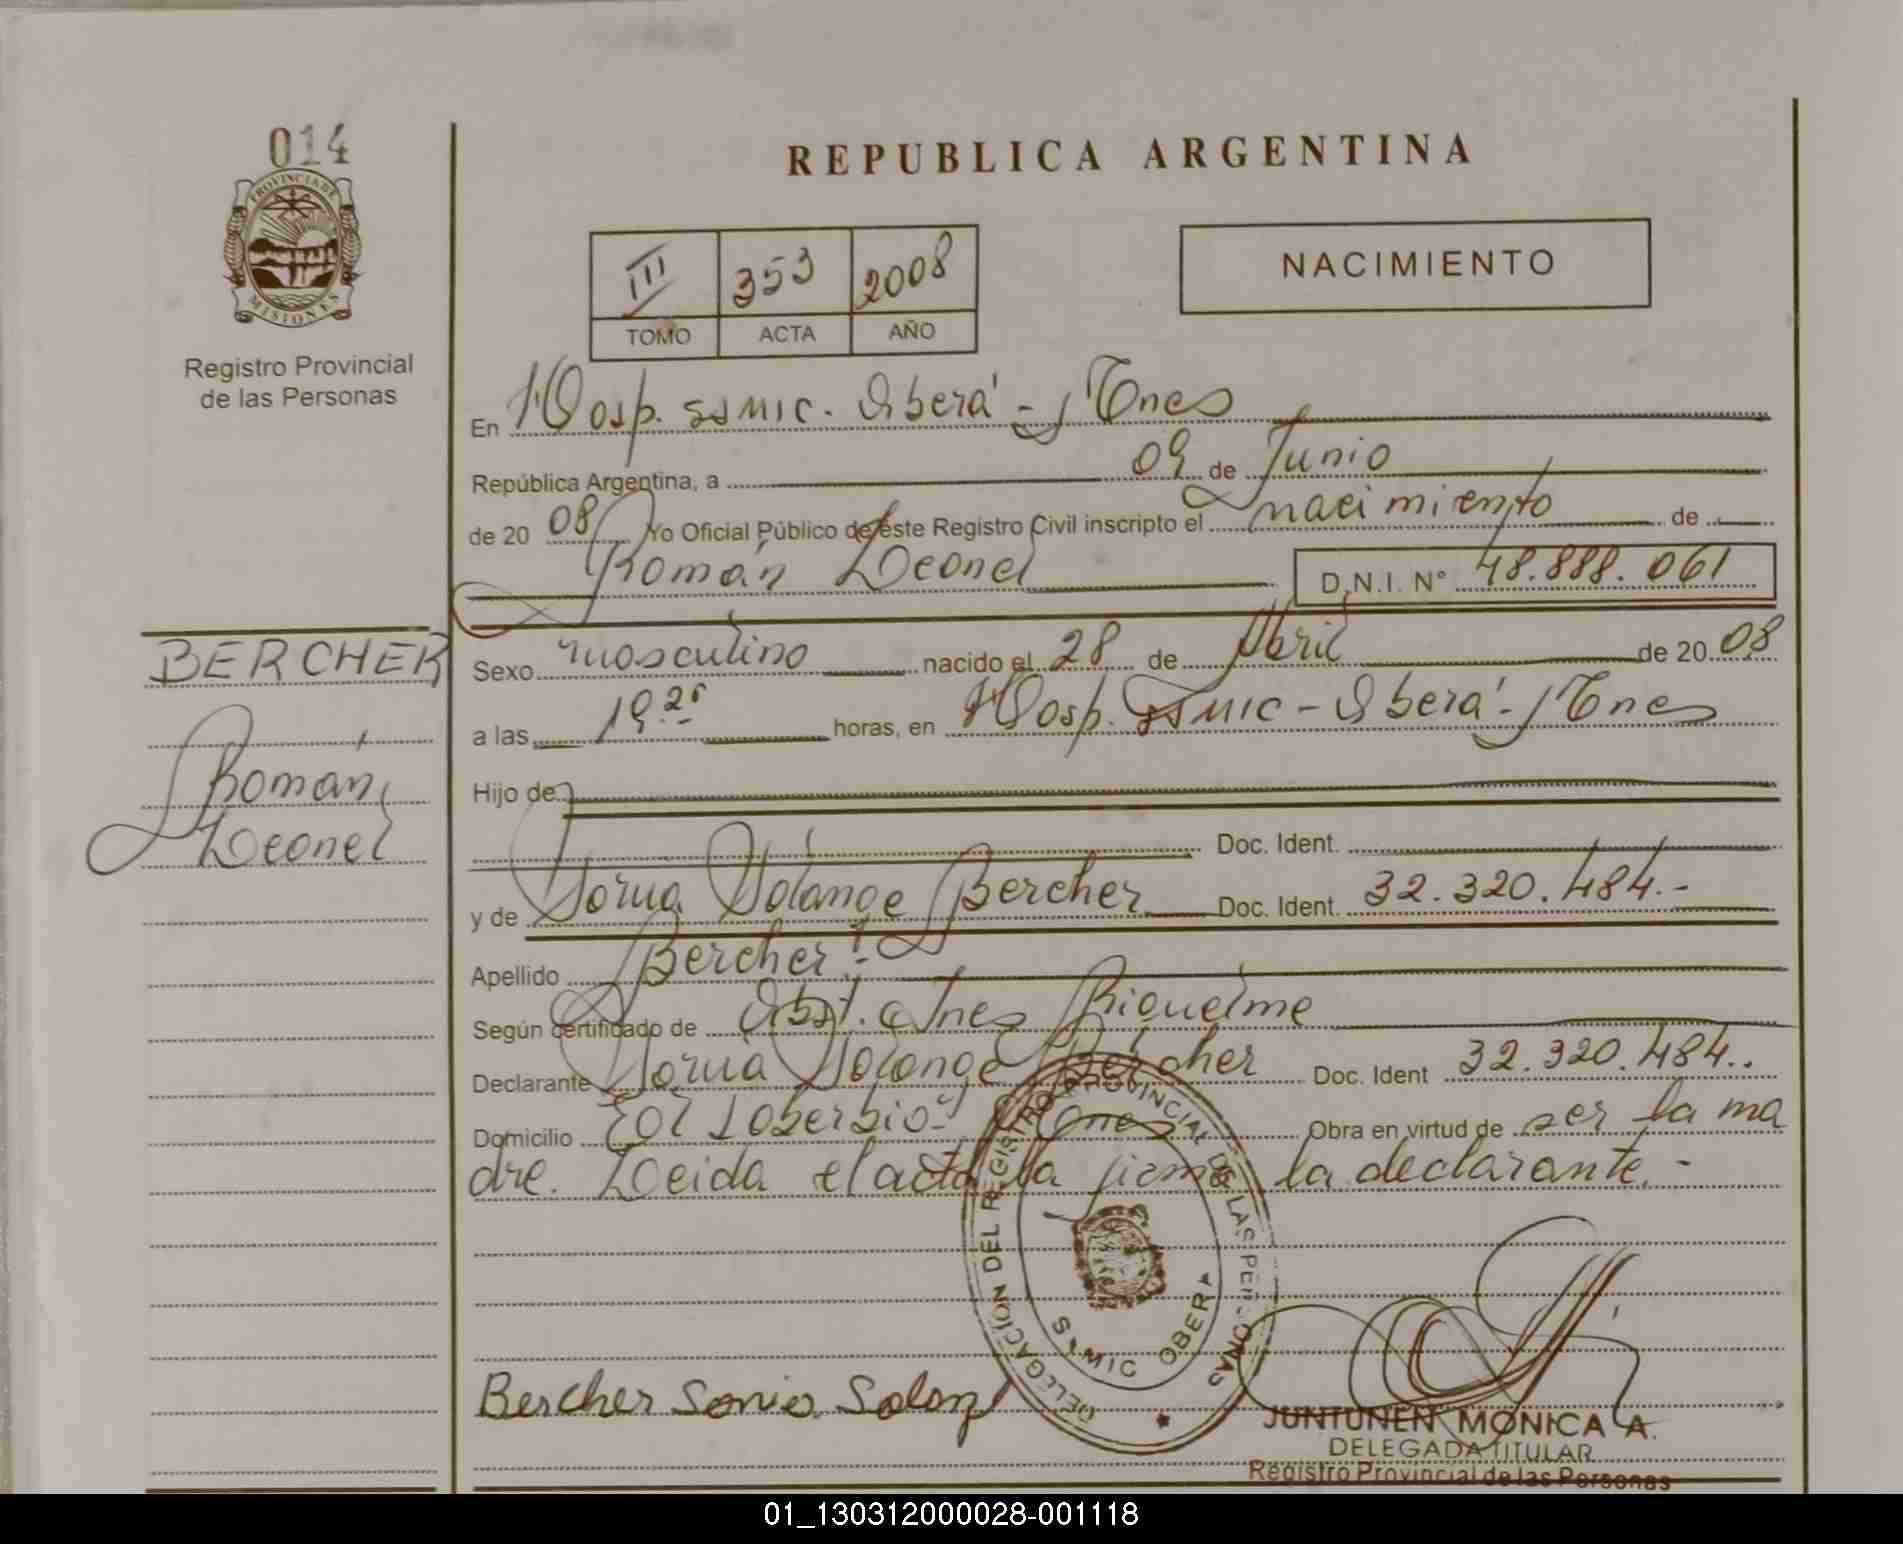 014
PROVINCIA DE
MISIONES
Registro Provincial
de las Personas
REPUBLICA ARGENTINA
III 353 2008
TOMO ACTA AÑO
NACIMIENTO
En Hosp. SAMIC. Oberá - Mnes
República Argentina, a 09 de Junio
de 20 08 Yo Oficial Público de éste Registro Civil inscripto el nacimiento de
Román Leonel D.N.I. N° 48.888.061
BERCHER
Román
Leonel
Sexo masculino nacido el 28 de Abril de 20 08
a las 19.25 horas, en Hosp. SAMIC - Oberá - Mnes
Hijo de
Doc. Ident.
y de Sonia Solange Bercher Doc. Ident. 32.320.484.-
Apellido Bercher.-
Según certificado de Obst. Ines Riquelme
Declarante Sonia Solange Bercher Doc. Ident 32.320.484..
Domicilio Col Soberbio - Mnes Obra en virtud de ser la ma
dre. Leida el acta la firma la declarante.-
DELEGACIÓN DEL REGISTRO PROVINCIAL DE LAS PERSONAS
SAMIC OBERA
Bercher Sonia Solang
JUNTUNEN MONICA A.
DELEGADA TITULAR
Registro Provincial de las Personas
01_130312000028-001118